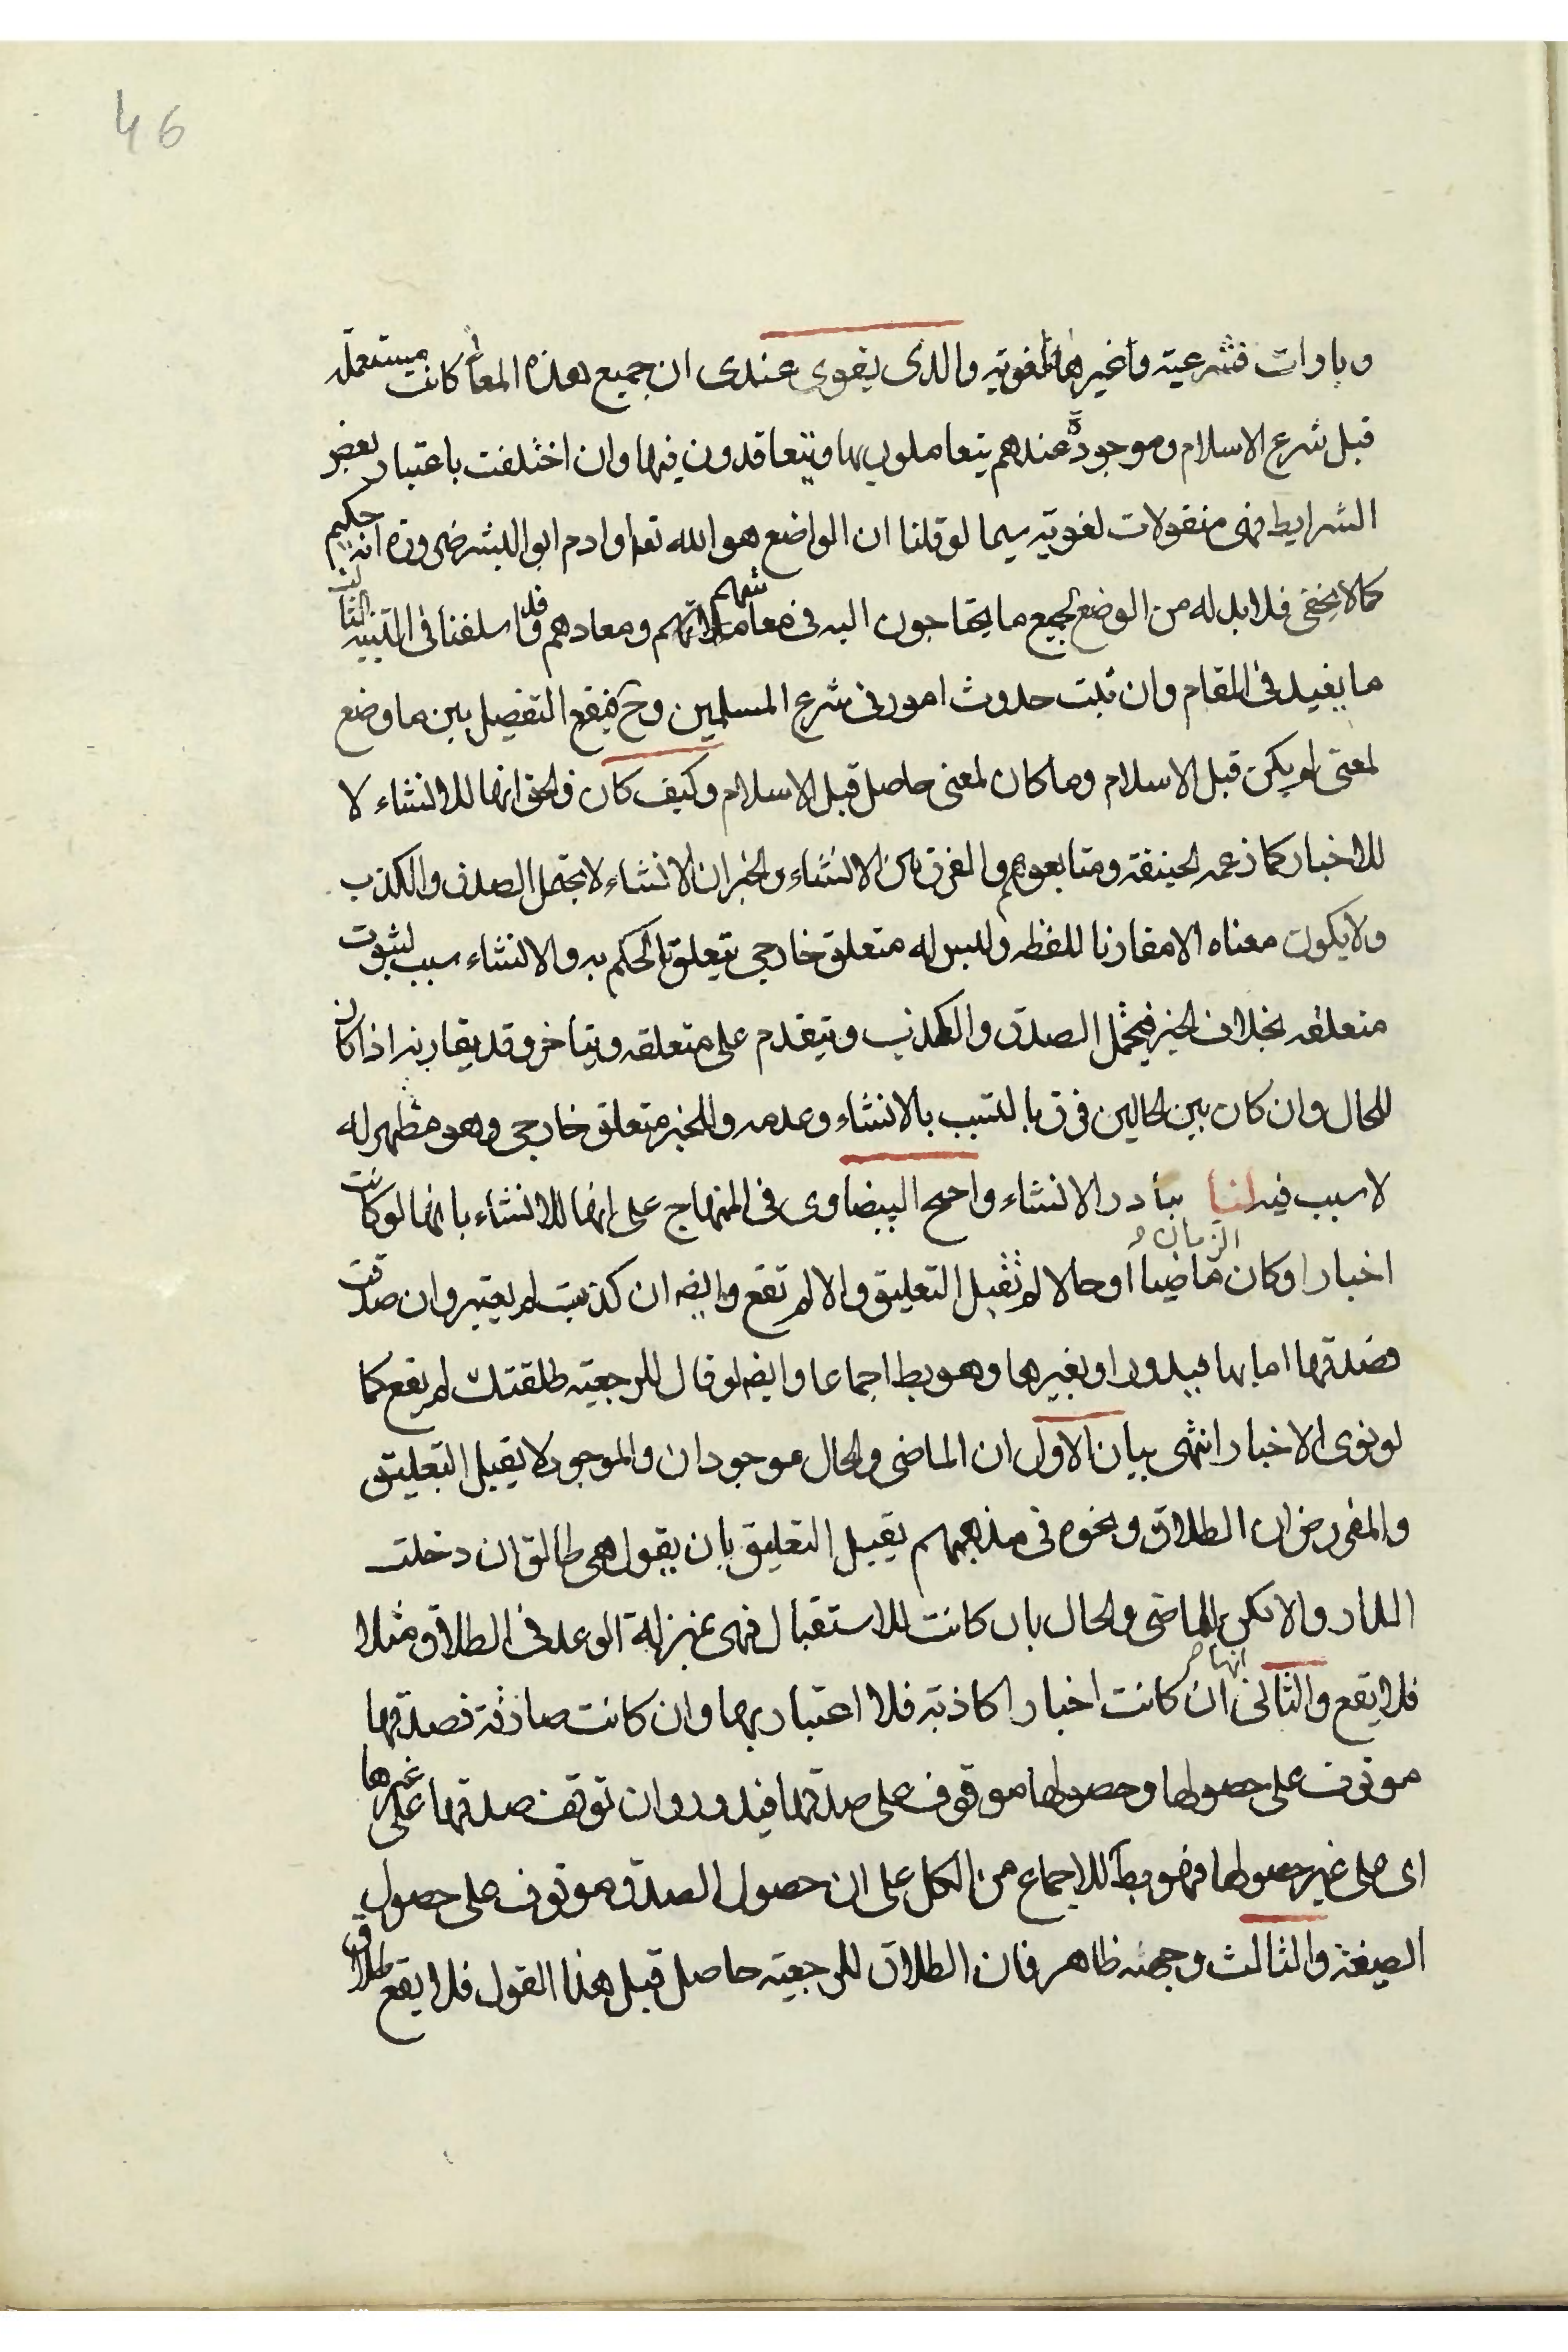 46
وبارات فشرعية واغيرها فلغوية والذى يقوى عندى ان جميع هذه المعانى كانت مستعملة
قبل شرع الاسلام وموجودة عندهم يتعاملون بها ويتعاقدون فيها وان اختلفت باعتبار بعض
الشرايط فهى منقولات لغوية سيما لو قلنا ان الواضع هو الله تعا او ادم ابو البشر ضرورة انه حكيم
كما لا يخفى فلا بد له من الوضع لجميع ما يحتاجون اليه فى معاشهم ومعادهم وقد اسلفنا فى التنبيه الثالث
ما يفيد فى المقام وان ثبت حدوث امور فى شرع المسلمين وح فيقع التفصيل بين ما وضع
لمعنى لم يكن قبل الاسلام وما كان لمعنى حاصل قبل الاسلام وكيف كان فالحق انها للانشاء لا
للاخبار كما زعمه الحنيفة ومتابعوهم والفرق بين الانشاء والخبر ان الانشاء لا يحتمل الصدق والكذب
ولا يكون معناه الا مقارنا للفظه وليس له متعلق خارجى يتعلق الحكم به والانشاء سبب لثبوت
متعلقه بخلاف الخبر فيحتمل الصدق والكذب ويتقدم على متعلقه ويتاخر وقد يقارنه اذا كان
للحال وان كان بين الحالين فرق بالتسبب بالانشاء وعدمه وللخبر متعلق خارجى وهو مظهر له
لا سبب فيه لنا تبادر الانشاء واحتج البيضاوى فى المنهاج على انها للانشاء بانها لو كانت
اخبارا وكان الزمان ماضيا او حالا لم تقبل التعليق والا لم تقع وايضه ان كذبت لم يعتبر وان صدقت
فصدقها اما بها فيدور او بغيرها وهو بط اجماعا وايضه لو قال للرجعية طلقتك لم يقع كما
لو نوى الاخبار انتهى بيان الاول ان الماضى والحال موجودان والموجود لا يقبل التعليق
والمفروض ان الطلاق ونحوه فى مذهبهم يقبل التعليق بان يقول هى طالق ان دخلت
الدار والا تكن للماضى والحال بان كانت للاستقبال فهى بمنزلة الوعد فى الطلاق مثلا
فلا يقع والثانى انها ان كانت اخبارا كاذبة فلا اعتبار بها وان كانت صادقة فصدقها
موقوف على حصولها وحصولها موقوف على صدقها فيدور وان توقف صدقها على غيرها
اى على غير حصولها فهو بط للاجماع من الكل على ان حصول الصدق موقوف على حصول
الصيغة والثالث وجهه ظاهر فان الطلاق للرجعية حاصل قبل هذا القول فلا يقع طلاق